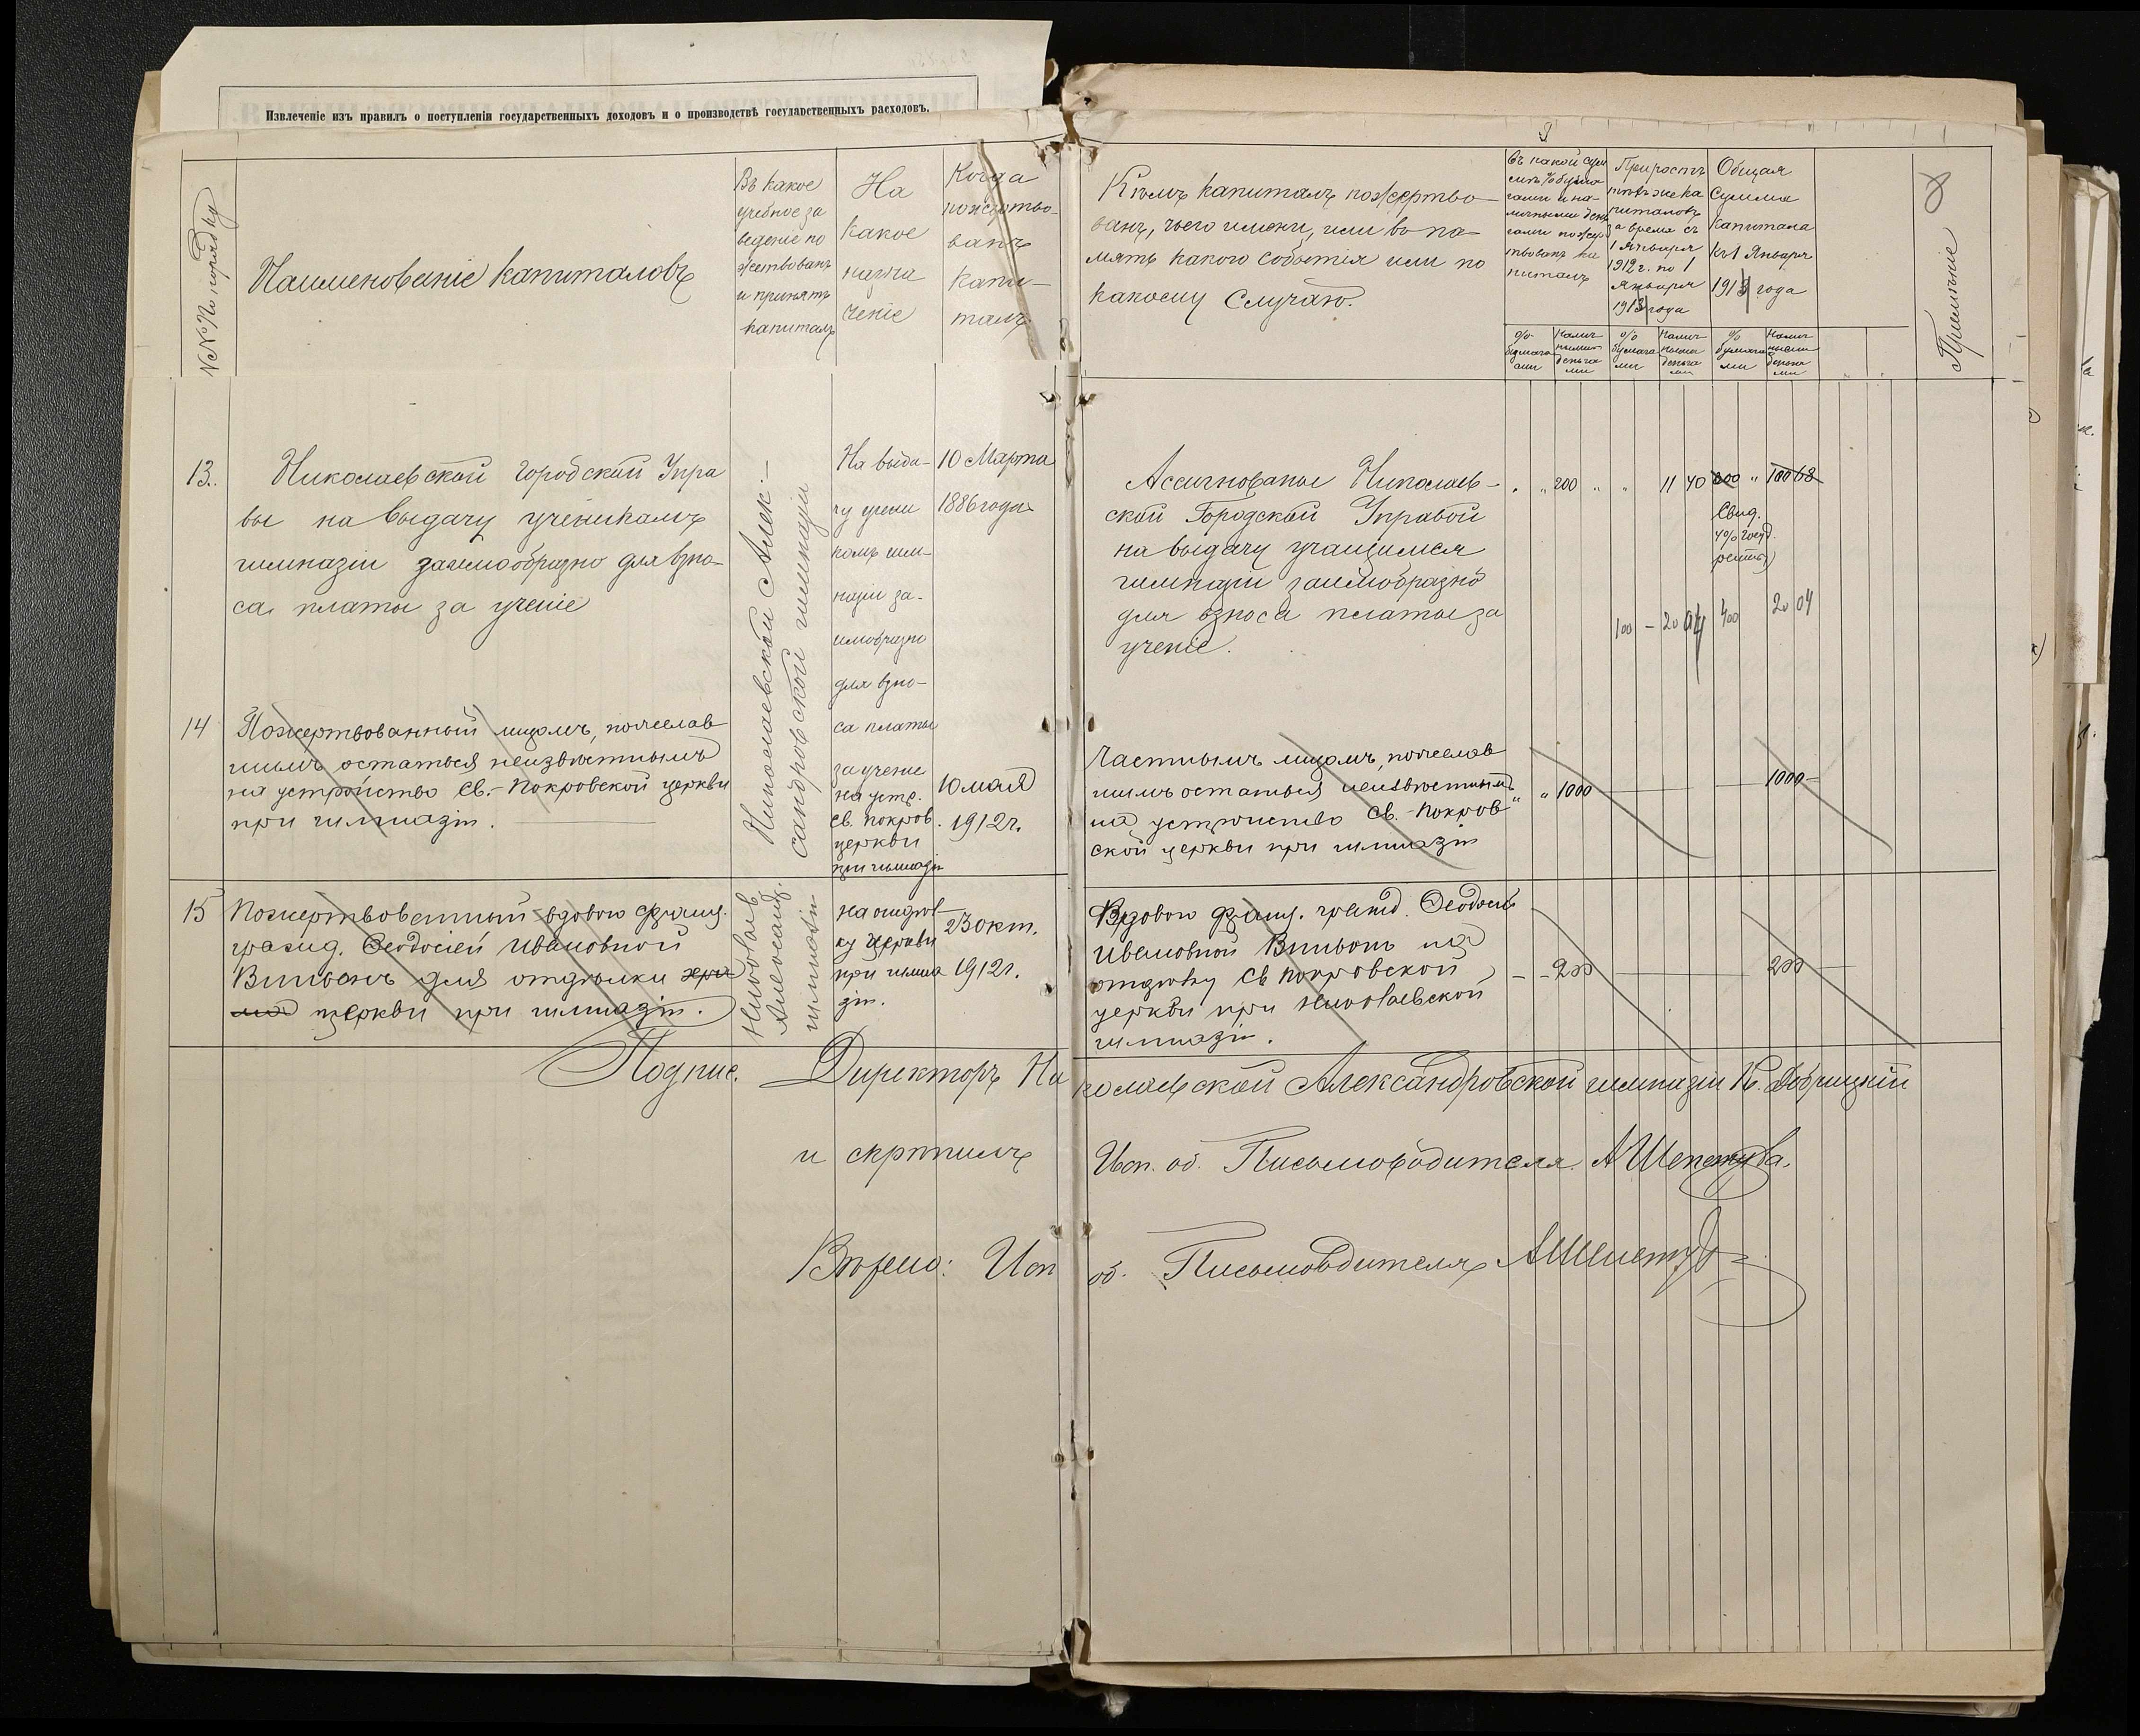 Извлеченіе изъ правилъ о поступленіи государственныхъ доходовъ и о производствѣ государственныхъ расходовъ.
№№ По порядку
Наименованіе капиталовъ
Въ какое
учебное за
веденіе по
жертвованъ
и принятъ
капиталъ
На
какое
назна
ченіе
Когда
пожертво-
ванъ
капи-
талъ
Кѣмъ капиталъ пожертво-
ванъ, чьего имени, или въ па-
мять какого событія или по
какому случаю.
Въ какой сум
мѣ % бума
гами и на-
личными день
гами пожер
твованъ ка
питалъ
Приростъ
тѣхъ же ка
питаловъ
за время съ
1 Января
1912 г. по 1
Января
1913 года
Общая
сумма
капитала
къ 1 Января
1913 года
Примѣчаніе
8
%
бумага
ми
Налич
ными
деньга
ми
%
бумага
ми
Налич
ными
деньга
ми
%
бумага
ми
Налич
ными
деньга
ми
13.
Николаевской городской Упра
вы на выдачу ученикамъ
гимназіи заимообразно для взно-
са платы за ученіе
Николаевской Алек-
сандровской гимназіи
На выда-
чу учени
камъ гим-
назіи за-
имобразно
для взно-
са платы
за ученіе
10 Марта
1886 года
Ассигнованы Николаев-
ской Городской Управой
на выдачу учащимся
гимназіи заимобразно
для взноса платы за
ученіе.
" " 200 " " 11 40 300 " 100 68
Свид.
4% госуд.
ренты)
100 - 20 04 400 20 04
14
Пожертвованный лицомъ, пожелав
шимъ остаться неизвѣстнымъ
на устройство Св.-Покровской церкви
при гимназіи.
на устр.
св. покров.
церкви
при гимназіи
10 мая
1912 г.
Частнымъ лицомъ, пожелав
шимъ остаться неизвѣстнымъ
на устройство Св.-Покров
ской церкви при гимназіи
" " 1000 1000-
15
Пожертвованный вдовою Франц.
гражд. Ѳеодосіей Ивановной
для отдѣлки
церкви при гимназіи.
Николаев.
Александ.
гимназіи
на отдѣл-
ку церкви
при гимна
зіи.
23 окт.
1912 г.
Вдовою Франц. гражд. Ѳеодосіей
Ивановной на
отдѣлку Св Покровской
церкви при Николаевской
гимназіи.
- - 200 200
Подпис. Директоръ Николаевской Александровской гимназіи К. Добрицкій
и скрѣпилъ Исп. об. Письмоводителя
Вѣрно: Исп об. Письмоводителя